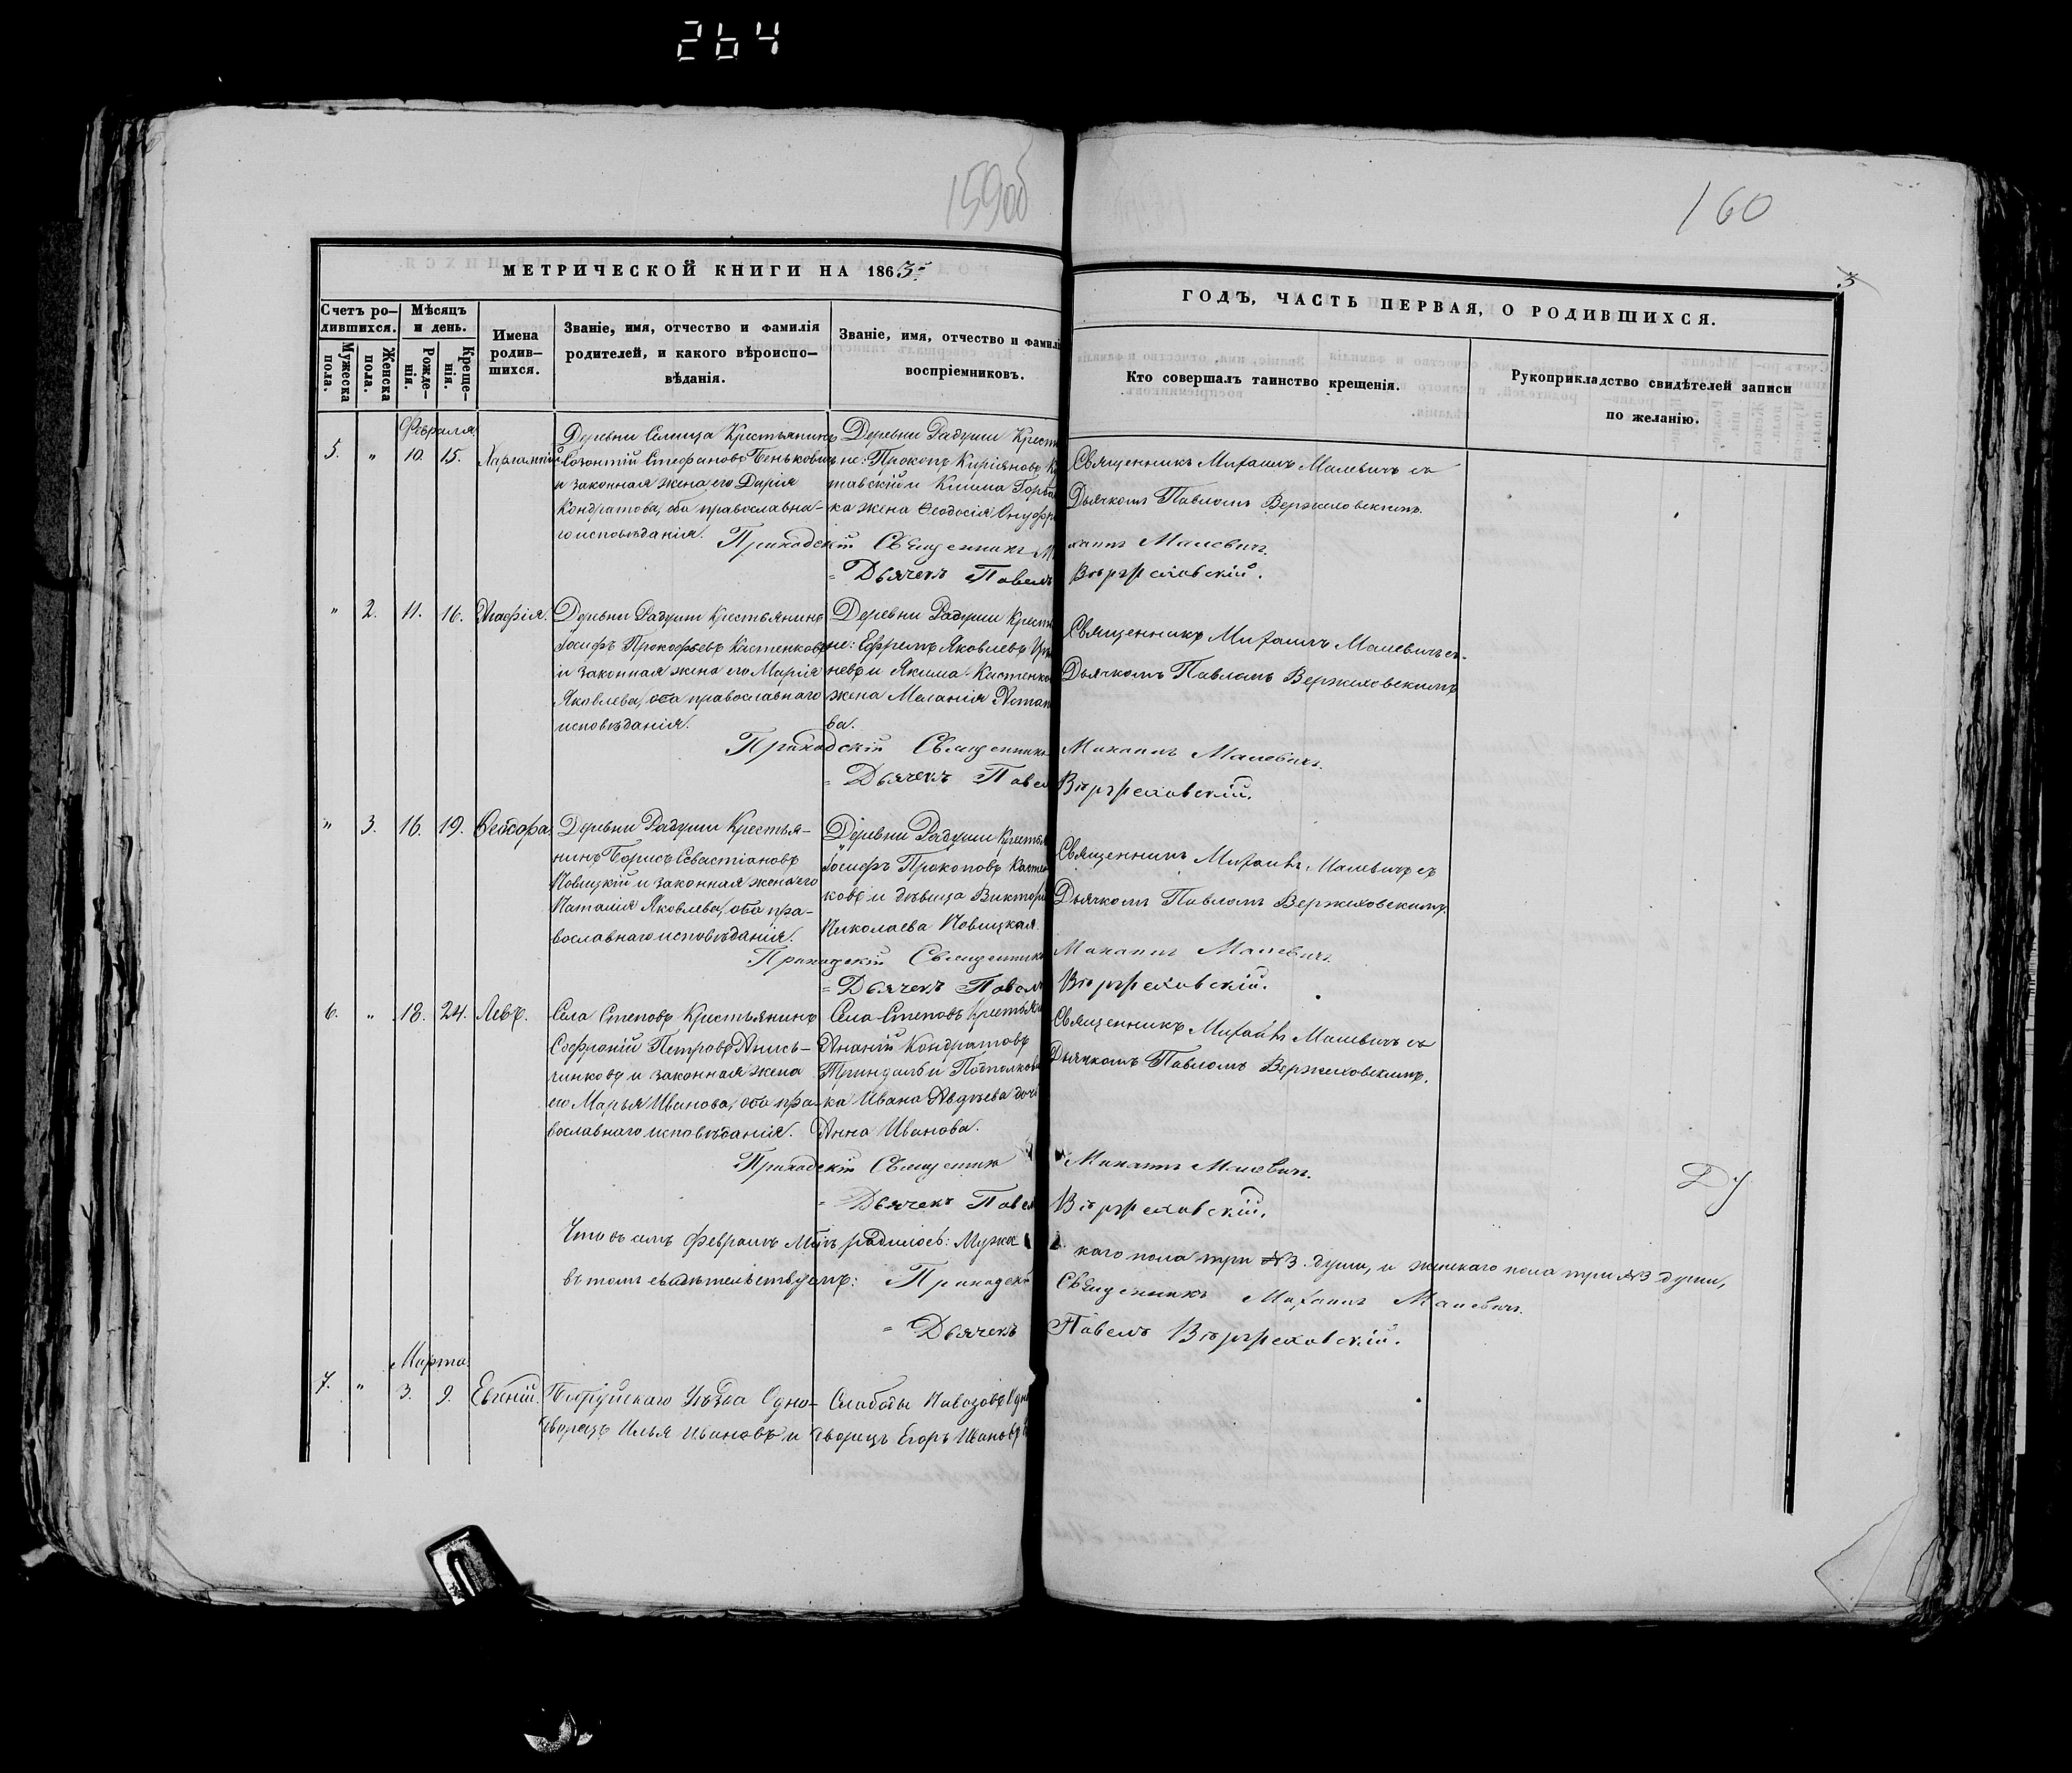 264
159об
160
МЕТРИЧЕСКОЙ КНИГИ НА 1863
ГОДЪ, ЧАСТЬ ПЕРВАЯ, О РОДИВШИХСЯ.
Счетъ ро–
дившихся.
Мужеска
пола.
Женска
пола.
Мѣсяцъ
и день.
Рожде–
нія.
Креще–
нія.
Имена
родив–
шихся.
Званіе, имя, отчество и фамилія
родителей, и какого вѣроиспо–
вѣданія.
Званіе, имя, отчество и фамилі
воспріемниковъ.
Кто совершалъ таинство крещенія.
Рукоприкладство свидѣтелей записи
по желанію.
Февраля
5. " 10. 15. Харлампій
Деревни Селища Крестьянинъ
Созонтій Стефановъ Пеньковичъ
и законная жена его Дарія
Кондратова, оба православна-
го исповѣданія.
Деревни Радуши Крестья
не: Прокопъ Киріяновъ
тавскій и Клима
ка жена Ѳеодосія Онуфр
Священникъ Михаилъ Малевичъ съ
Дьячкомъ Павломъ Вержеховскимъ.
Приходскій Священникъ Михаилъ Малевичъ.
Дьячекъ Павелъ Вержеховскій.
" 2. 11. 16. Агафія.
Деревни Радуши Крестьянинъ
Іосифъ Прокофьевъ Кастенковъ
и законная жена его Марія
Яковлева, оба православнаго
исповѣданія.
Деревни Радуши Кресть
не: Ефремъ Яковлевъ
невъ и Якима Кастенко
жена Меланія
ва.
Священникъ Михаилъ Малевичъ съ
Дьячкомъ Павломъ Вержеховскимъ
Приходскій Священникъ Михаилъ Малевичъ.
Дьячекъ Павел Вержеховскій.
" 3. 16. 19.
Деревни Радуши Крестья-
нинъ Борисъ Севастіановъ
Новицкій и законная жена его
Наталія Яковлева, оба пра-
вославнаго исповѣданія.
Деревни Радуши Крестья
Іосифъ Прокоповъ Кастен
ковъ и дѣвица Виктори
Николаева Новицкая.
Священникъ Михаилъ Малевичъ съ
Дьячкомъ Павломъ Вержеховскимъ.
Приходскій Священникъ Михаилъ Малевичъ.
Дьячекъ Павелъ Вержеховскій.
6. " 18. 24. Левъ.
Села Степовъ Крестьянинъ
Софроній Петровъ Анись-
чинковъ и законная жена
его Марья Иванова, оба пра-
вославнаго исповѣданія.
Села Степовъ Крестьян
Ананій Кондратовъ
и Подполковни
ка Ивана Авдѣева дочь
Анна Иванова.
Священникъ Михаилъ Малевичъ съ
Дьячкомъ Павломъ Вержеховскимъ.
Приходскій Священник Михаилъ Малевичъ.
Дьячекъ Павел Вержеховскій.
Что въ семъ Февралѣ М-цѣ родилось: Мужес каго пола три №3. души, и женскаго пола три №3 души,
въ томъ свидѣтельствуемъ: Приходскі Священникъ Михаилъ Малевичъ.
Дьячекъ Павелъ Вержеховскій.
Марта.
7. " 3. 9. Евгеній.
Бобруйскаго Уѣзда Одно-
дворецъ Илья Ивановъ и
Слободы Навозовъ Одно
дворецъ Егоръ Ивановъ